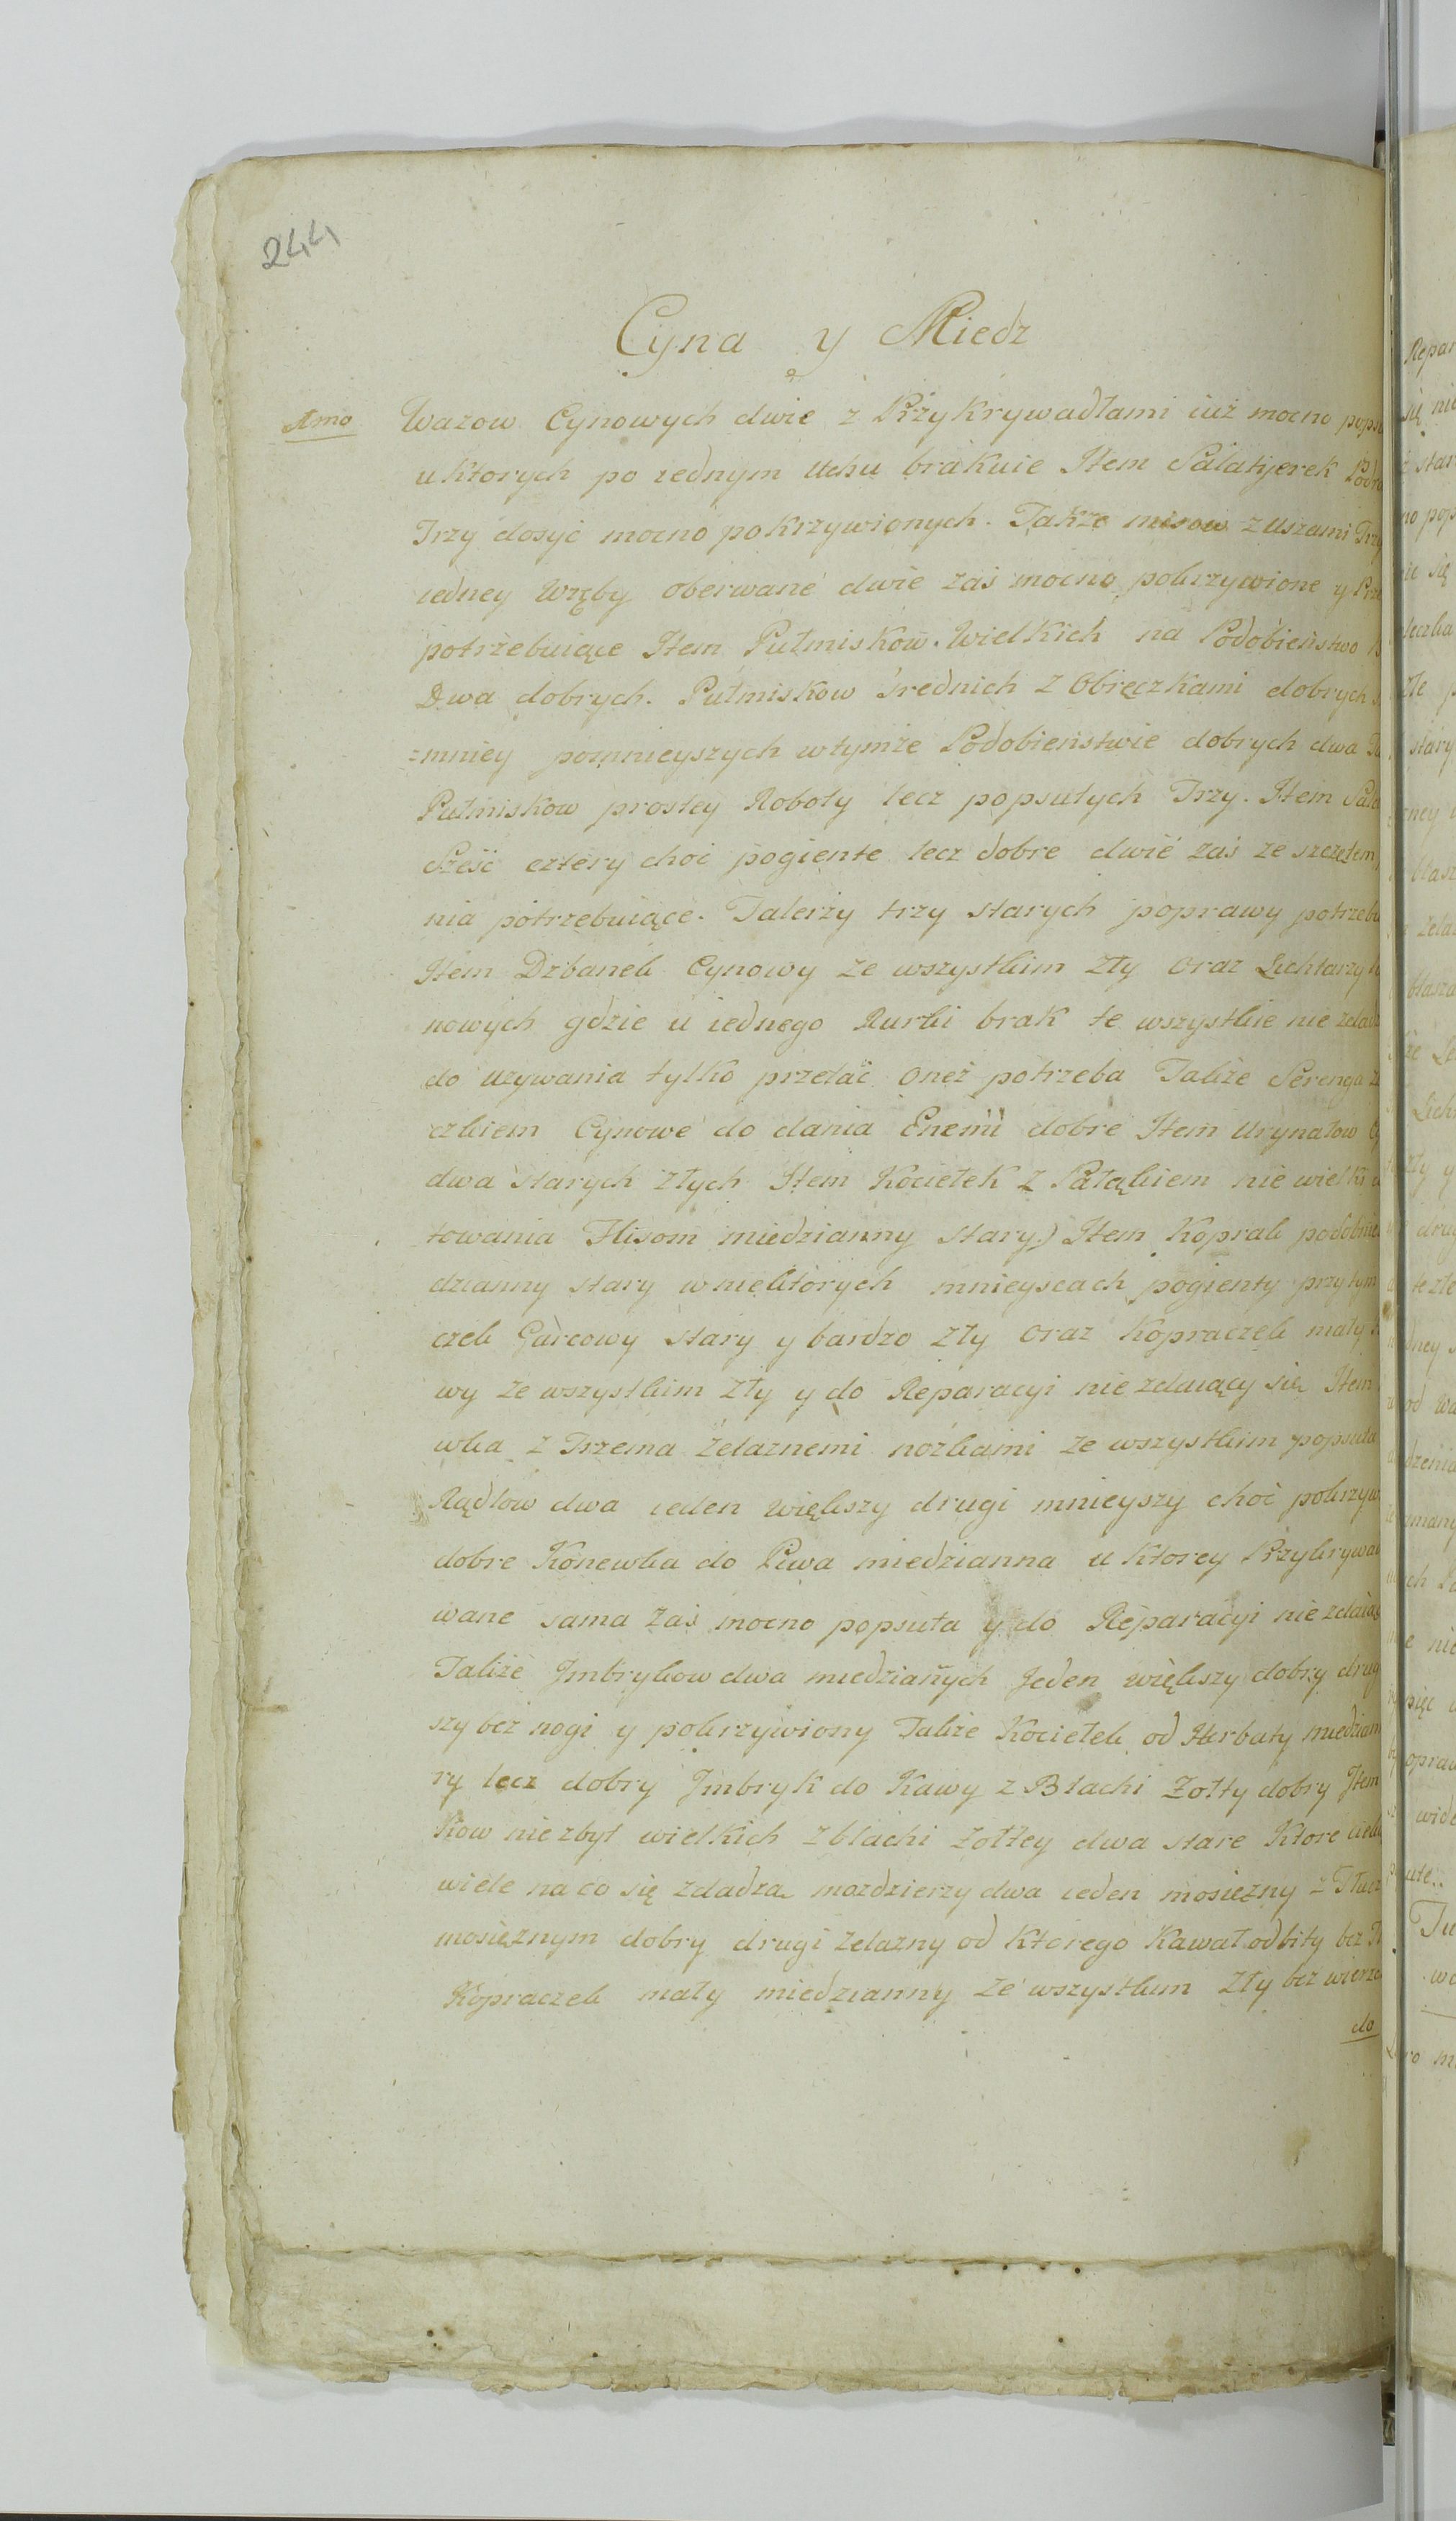 244
Cyna y Miedz
Amo
Wazow Cynowych dwie z Przykrywadłami iuż mocno
u ktorych po iednym Uchu brakuie Item Salatyerek
Trzy dosyć mocno pokrzywionych. Także misow z Uszami
iedney Wręby oberwane dwie zaś mocno pokrzywione y
potrzebuiące Item Pułmiskow Wielkich na Podobieństwo
Dwa dobrych. Pułmiskow srednich z Obręczkami dobrych
mniey pomnieyszych w tymże Podobieństwie dobrych dwa
Pułmiskow prostey Roboty lecz popsutych Trzy. Item
Sześć cztery choć pogiente lecz dobre dwie zaś ze szczętem
nia potrzebuiące. Talerzy trzy starych poprawy
Item Dzbanek Cynowy ze wszystkim zły oraz Lichtarzy
nowych gdzie u iednego Rurki brak te wszystkie nie
do używania tylko przelać oneż potrzeba Także Serenga
czkiem Cynowe do dania Enemi dobre Item Urynałow
dwa starych złych Item Kociełek z Pałąkiem nie wielki
towania Flisom miedzianny stary) Item Koprak
dzianny stary w niektorych mnieyscach pogienty przytym
czek Garcowy stary y bardzo zły oraz Kopraczek mały
wy ze wszystkim zły y do Reparacyi nie zdaiący się Item
wka z Trzema Żelaznemi nożkami ze wszystkim popsuta
Rądlow dwa ieden większy drugi mnieyszy choć
dobre Konewka do Piwa miedzianna u ktorey
wane sama zaś mocno popsuta y do Reparacyi nie
Także Jmbrykow dwa miedzianych Jeden większy dobry
szy bez nogi y pokrzywiony Także Kociełek od Herbaty
ry lecz dobry Jmbryk do Kawy z Blachi Żołty dobry Jtem
kow nie zbyt wielkich z blachi żołtey dwa stare Ktore
wiele na co się zdadzą mozdzierzy dwa ieden mosiężny z
mosiężnym dobry drugi żelazny od ktorego Kawał odbity bez
Kopraczek mały miedzianny ze wszystkim zły bez
do